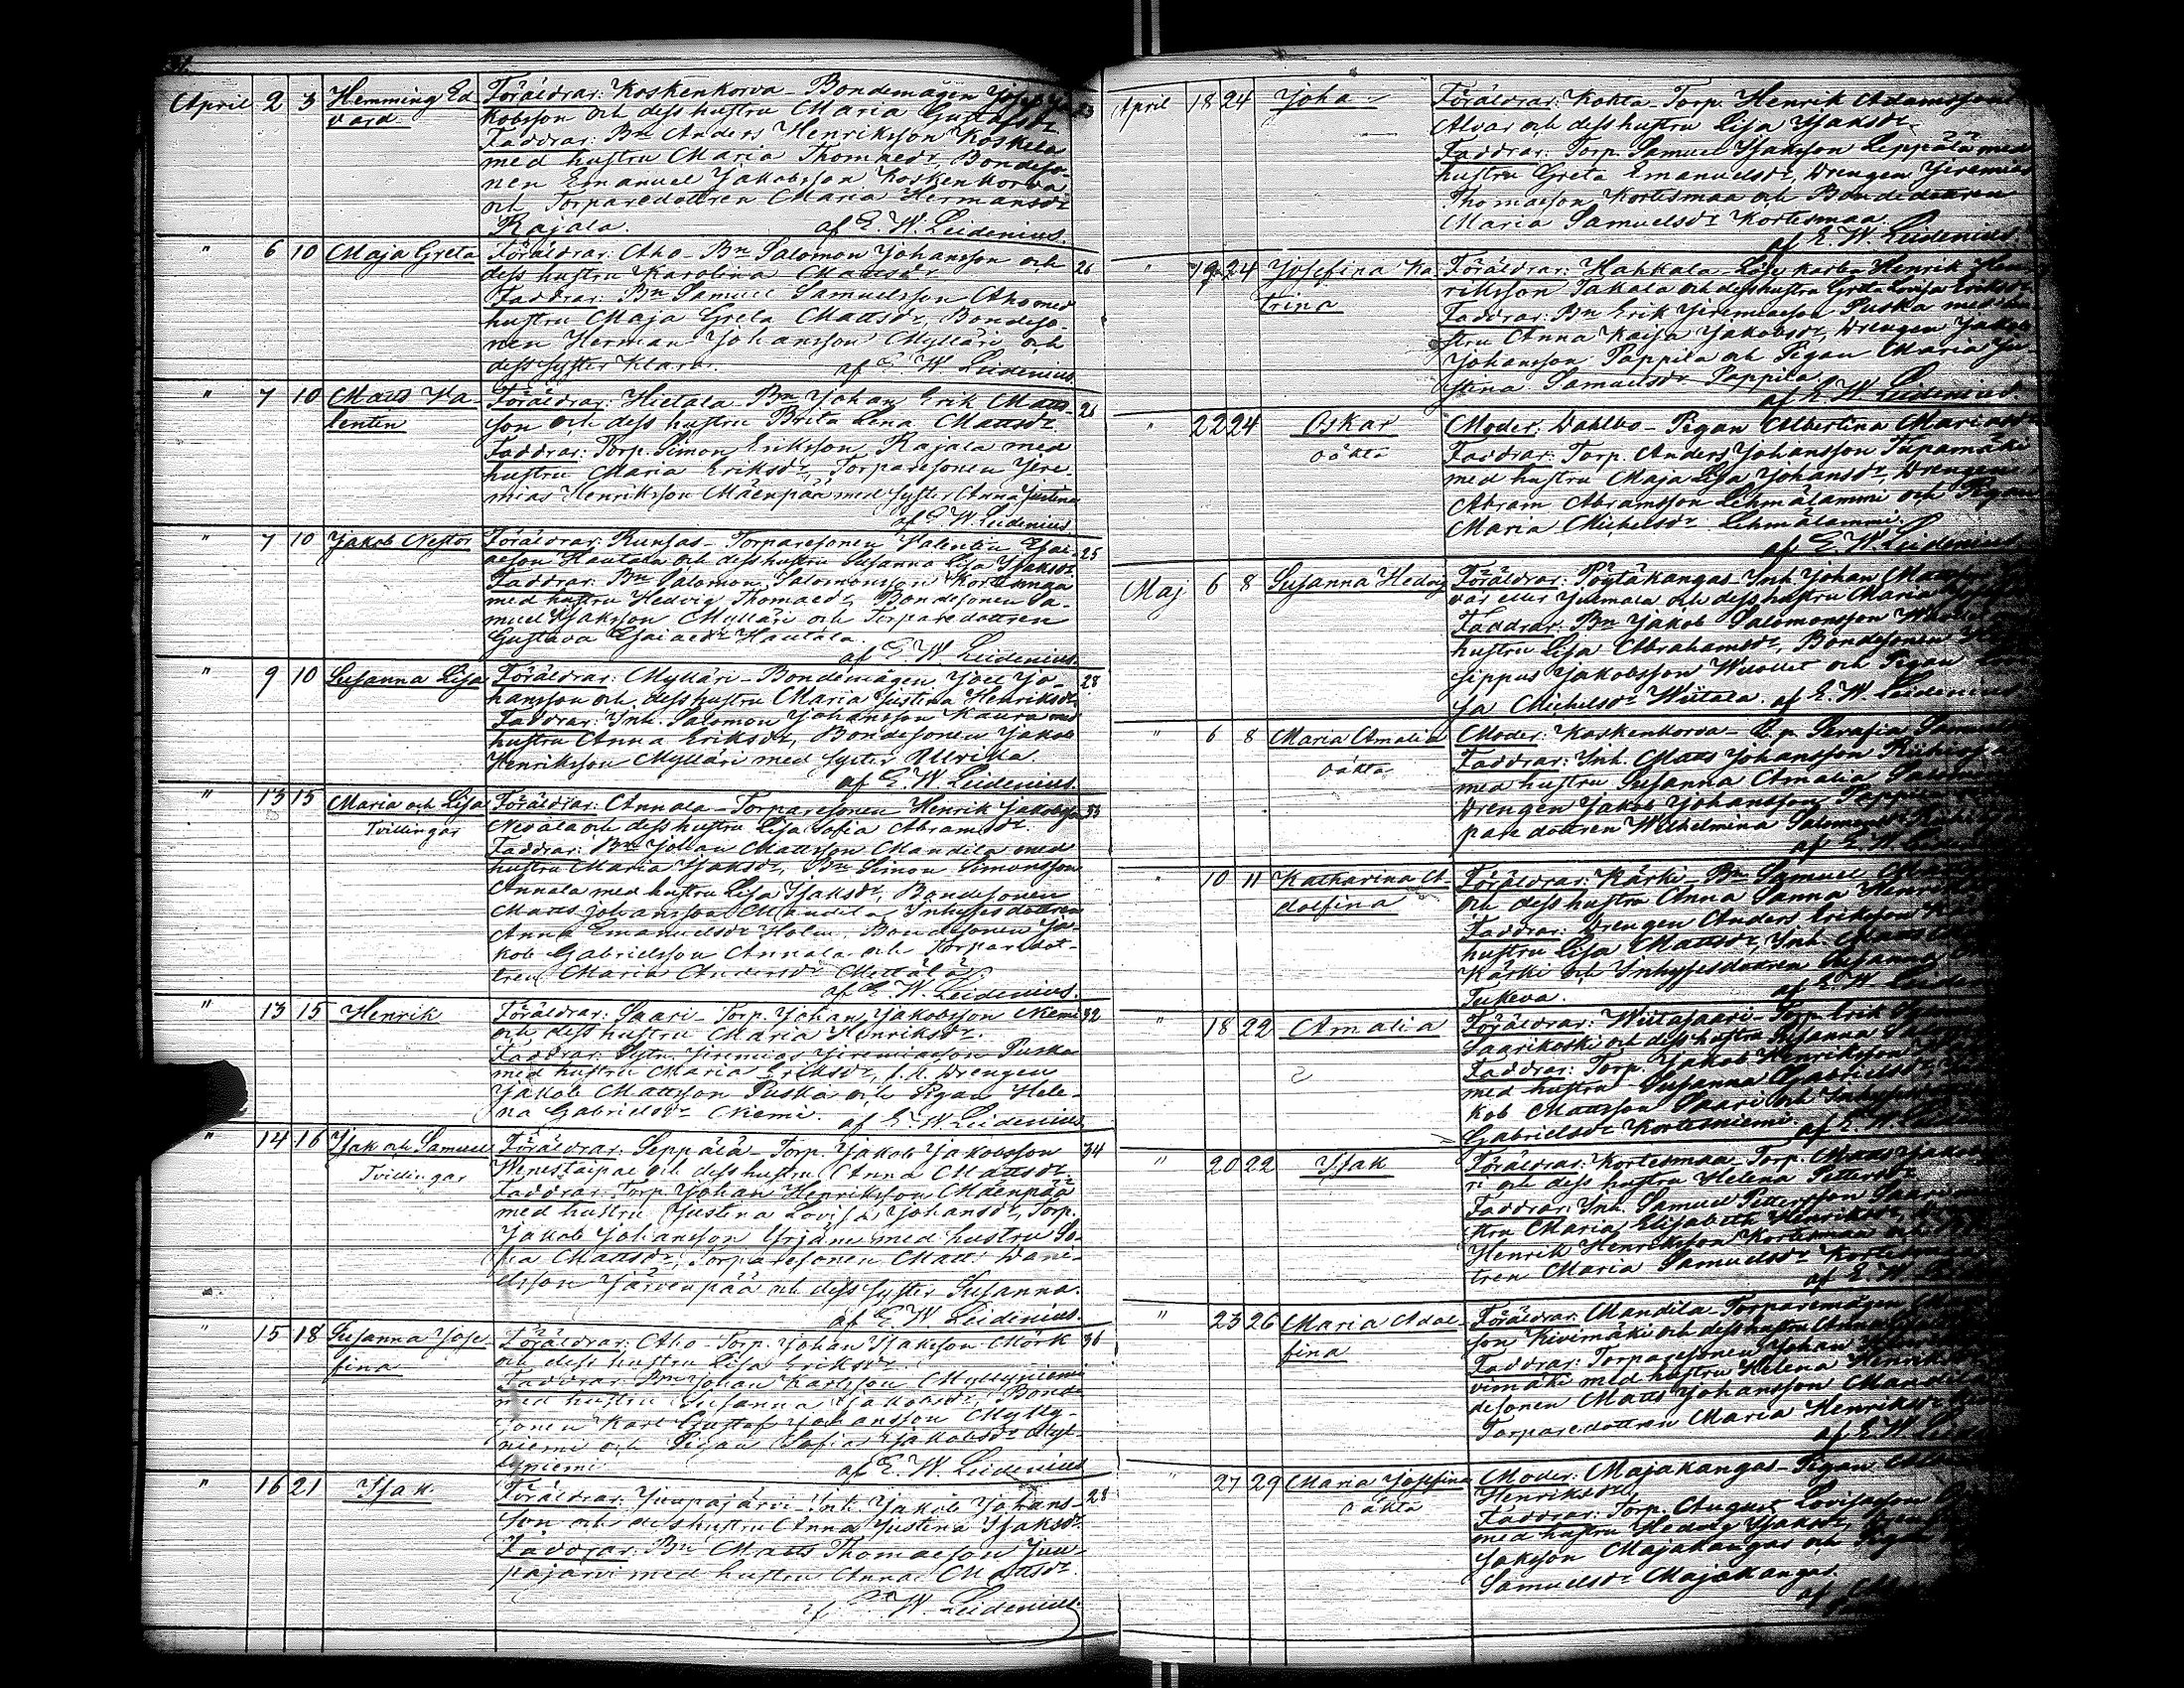 April 2 3 Hemming Ed- Föräldrar: Koskenkorva - Bondemågen Josep Ja- 23
vard kobsson och dess hustru Maria Gustafsdr
Faddrar: Bn Anders Henriksson Koskela
med hustru Maria Thomaedr, Bondeso-
nen Emanuel Jakobsson Koskenkorva
och Torparedottren Maria Hermansdr
Rajala. af E. W. Leidenius.
" 6 10 Maja Greta Föräldrar: Aho - Bn Salomon Johansson och 26
dess hustru Karolina Mattsdr
Faddrar: Bn Samuel Samuelsson Aho med
hustru Maja Greta Mattsdr, Bondeso-
nen Herman Johansson Mylläri och
dess syster Klara. af E. W. Leidenius.
" 7 10 Matts Va- Föräldrar: Hietala - Bn Johan Erik Matts- 21
lentin son och dess hustru Brita Lena Mattsdr.
Faddrar: Torp. Simon Eriksson Rajala med
hustru Maria Eriksdr, Torparesonen Jere-
mias Henriksson Mäenpää med syster Anna Justina
af E. W. Leidenius
" 7 10 Jakob Nestor Föräldrar: Runsas - Torparesonen Valentin Esai- 25
aeson Hautala och dess hustru Susanna Lisa Isaksdr
Faddrar: Bn Salomon Salomonsson Kortesmaa
med hustru Hedvig Thomaedr, Bondesonen Sa-
muel Isaksson Mylläri och Torparedottren
Gustava Esaiaedr Hautala.
af E. W. Leidenius.
" 9 10 Susanna Lisa Föräldrar: Mylläri - Bondemågen Joel Jo- 28
hansson och dess hustru Maria Justina Henriksdr
Faddrar: Inh. Salomon Johansson Kaura med
hustru Anna Eriksdr, Bondesonen Jakob
Henriksson Mylläri med syster Ullrika.
af E. W. Leidenius.
" 13 15 Maria och Lisa Föräldrar: Annala - Torparesonen Henrik Jakobsson 33
Tvillingar Nevala och dess hustru Lisa Sofia Abramsdr.
Faddrar: Bn Johan Mattsson Mandila med
hustru Maria Isaksdr, Bn Simon Simonsson
Annala med hustru Lisa Isaksdr, Bondesonen
Matts Johansson Mandila, Inhysesdottren
Anna Emanuelsdr Holm, Bondesonen Ja-
kob Gabrielsson Annala och Torparedot-
tren Maria Andersdr Mettälä.
af E. W. Leidenius.
" 13 15 Henrik Föräldrar: Saari - Torp. Johan Jakobsson Niemi 32
och dess hustru Maria Henriksdr.
Faddrar: Sytn. Jeremias Jeremiaeson Puska
med hustru Maria Eriksdr, f.d. Drengen
Jakob Mattsson Puska och Pigan Hele-
na Gabrielsdr Niemi. af E. W. Leidenius
" 14 16 Isak och Samuel Föräldrar: Seppälä - Torp. Jakob Jakobsson 34
Tvillingar Wenestaipal och dess hustru Anna Mattsdr.
Faddrar: Torp Johan Henriksson Mäenpää
med hustru Justina Lovisa Johansdr, Torp.
Jakob Johansson Yrjänä med hustru So-
fia Mattsdr, Torparesonen Matts Dani-
elsson Järvenpää och dess syster Susanna.
af E. W. Leidenius.
" 15 18 Susanna Jose- Föräldrar: Aho - Torp. Johan Isaksson Mörk 36
fina och dess hustru Lisa Eriksdr.
Faddrar: Bn Johan Karlsson Myllyniemi
med hustru Susanna Jakobsdr, Bonde-
sonen Karl Gustaf Johansson Mylly-
niemi och Pigan Sofia Jakobsdr Myl-
lyniemi af E. W. Leidenius
" 16 21 Isak Föräldrar: Juupajärvi - Inh. Jakob Johans- 28
son och dess hustru Anna Justina Isaksdr.
Faddrar: Bn Matts Thomaeson Juu-
pajärvi med hustru Anna Mattsdr.
af E. W. Leidenius.
April 18 24 Joha Föräldrar: Kokla - Torp. Henrik Adamsson
Alvar och dess hustru Lisa Isaksdr.
Faddrar: Torp. Samuel Isaksson Leppälä med
hustru Greta Emanuelsdr, Drengen Jeremias
Thomaeson Kortesmaa och Bondedottren
Maria Samuelsdr Kortesmaa.
af E. W. Leidenius.
" 19 24 Josefina Ka- Föräldrar: Hahkala - Lösekarlen Henrik Hen-
trina riksson Takala och dess hustru Greta Lovisa Eriksdr
Faddrar: Bn Erik Jeremiaeson Puska med hu-
stru Anna Kaisa Jakobsdr, Drengen Jakob
Johansson Pappila och Pigan Maria Ju-
stina Samuelsdr Pappila.
af E. W. Leidenius.
" 22 24 Oskar Moder: Dahlbo - Pigan Albertina Mariasdr
oäkta Faddrar: Torp. Anders Johansson Tupamäki
med hustru Maja Lisa Johansdr, Drengen
Abram Abramsson Lehmälammi och Pigan
Maria Michelsdr Lehmälammi.
af E. W. Leidenius
Maj 6 8 Susanna Hedvig Föräldrar: Pöytäkangas - Inh Johan Mattsson
var eller Juemala och dess hustru Maria
Faddrar: Bn Jakob Salomonsson
hustru Lisa Abrahamsdr, Bondesonen
sippus Jakobsson Wuollet och Pigan
sa Michelsdr Wiitala. af E. W. Leidenius
" 6 8 Maria Amalia Moder: Koskenkorva - Serafia
oäkta Faddrar: Inh. Matts Johansson
med hustru Susanna Amalia
Drengen Jakob Johansson
paredottren Wilhelmina Salomonsdr
af E. W.
" 10 11 Katharina A- Föräldrar: Kärki - Bn Samuel
dolfina och dess hustru Anna Sanna
Faddrar: Drengen Anders Eriksson
hustru Lisa Mattsdr, Inh.
Kärki och Inhysesdottren Susanna
Tukeva. af E. W. Leiden
" 18 22 Amalia Föräldrar: Wiitasaari - Torp. Erik
Saarikoski och dess hustru Susanna
Faddrar: Torp. Jakob Henriksson
med hustru Susanna Gabrielsdr,
kob Mattsson Saari och Inhyses
Gabrielsdr Kortesniemi. af E. W.
" 20 22 Isak Föräldrar: Kortesmaa - Torp. Matts Jakob
ri och dess hustru Helena Pettersdr
Faddrar: Inh. Samuel Pettersson Saari
stru Maria Elisabeth Henriksdr,
Henrik Henriksson Kortesmaa och
tren Maria Samuelsdr Kortesmaa
af E. W.
" 23 26 Maria Adol- Föräldrar: Mandila - Torparemågen
fina son Kivimäki och dess hustru Anna
Faddrar: Torparesonen Johan
vimäki med hustru Helena Henriksdr
desonen Matts Johansson Mandila
Torparedottren Maria Henriksdr
af E. W.
" 27 29 Maria Josefina Moder: Majakangas - Pigan
oäkta Henriksdr
Faddrar: Torp. August Lovisaeson
med hustru Hedvig Isaksdr,
Isaksson Majakangas och Pigan
Samuelsdr Majakangas.
af